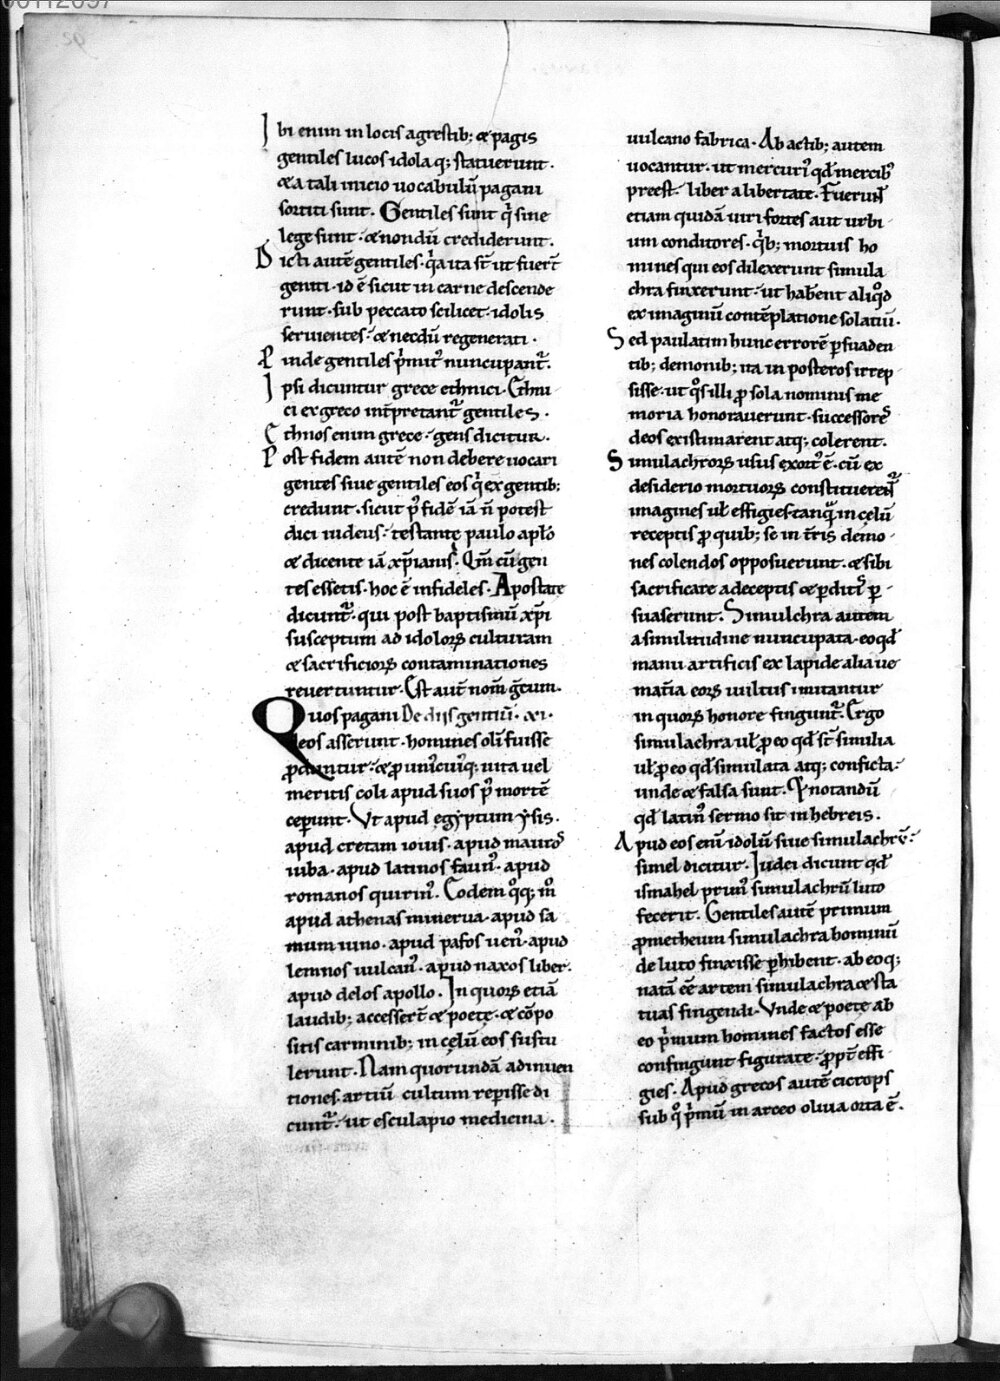 00112097
Ibi enim in locis agrestib; & pagis
gentiles lucos idola q; statuerunt.
& a tali inicio uocabulū pagani
sortiti sunt. Gentiles sunt q̇ sine
lege sunt. & nondū crediderunt.
Dicti autē gentiles. q̇a ita st̄ ut fuer̄t
geniti. id ē sicut in carne descende
runt. sub peccato scilicet. idolis
seruientes. & necdū regenerati.
Pinde gentiles p̍mit᷒ nuncupant᷑.
Ipsi dicuntur grece ethnici. Ethni
ci ex greco int̄pretant᷑ gentiles.
Ethnos enim grece. gens dicitur.
Post fidem autē non debere uocari
gentes siue gentiles eos q̇ ex gentib;
credunt. sicut p᷒ fidē iā ñ potest
dici iudeus. testante paulo apl̄o
& dicente iā xp̄ianis. Qm̄ cū gen
tes essetis. hoc ē infideles. Apostate
dicunt᷑. qui post baptismū xp̄i
susceptum ad idoloꝝ culturam
& sacrificioꝝ contaminationes
reuertuntur. Est aut̄ nom̄ gr̄cum.
Quos pagani De diis gentiū. xi.
deos asserunt. homines oli fuisse
ꝓduntur. & ꝓ unicuiq; uita uel
meritis coli apud suos p᷒ mortē
ceperunt. Vt apud egyptum ysis.
apud cretam iouis. apud mauro᷒
iuba. apud latinos faun᷒. apud
romanos quirin᷒. Eodem q̊q; m̊
apud athenas minerua. apud sa
mum iuno. apud pafos uen᷒. apud
lemnos uulcan᷒. apud naxos liber.
apud delos apollo. In quoꝝ etiā
laudib; accesser̄t & poetę. & cōpo
sitis carminib; in cęlū eos sustu
lerunt. Nam quorundā adinuen
tiones artiū cultum reperisse di
cunt᷑. ut esculapio medicina.
uulcano fabrica. Ab actib; autem
uocantur. ut mercuri᷒ qđ mercib᷒
preest. liber a libertate. Fuerunt
etiam quidā uiri fortes aut urbi
um conditores. q̇b; mortuis ho
mines qui eos dilexerunt simula
chra finxerunt. ut haberent aliq̊d
ex imaginū contēplatione solatiū.
Sed paulatim hunc errorē ꝑsuaden
tib; demonib; ita in posteros irrep
sisse. ut q̊s illi ꝓ sola nominis me
moria honorauerunt. successore᷒
deos existimarent atq; colerent.
Simulachroꝝ usus exort᷒ ē. cū ex
desiderio mortuoꝝ constituerent᷑
imagines ul̄ effigies. tanquā in cęlū
receptis ꝓ quib; se in tr̄is demo
nes colendos opposuerunt. & sibi
sacrificare a deceptis & ꝑditis ꝑ
suaserunt. Simulchra autem
a similitudine nuncupata. eo qđ
manu artificis ex lapide alia ue
mat̄ia eoꝝ uultus imitantur
in quoꝝ honore fingunt᷑. Ergo
simulachra ul̄ ꝓ eo qđ st̄ similia
ul̄ ꝓ eo qđ simulata atq; conficta.
unde & falsa sunt. Et notandū
qđ latin᷒ sermo sit in hebreis.
Apud eos eni idolū siue simulachrū.
simel dicitur. Iudei dicunt qđ
ismahel prim᷒ simulachrū luto
fecerit. Gentiles autē primum
ꝓmetheum simulachra hominū
de luto finxisse ꝑhibent. ab eoq;
natā eē artem simulachra & sta
tuas fingendi. Vnde & poetę ab
eo p̍mum homines factos esse
confingunt figurate. ꝓpt̄ effi
gies. Apud grecos autē cicrops
sub q̊ p̍mū in arceo oliua orta ē.